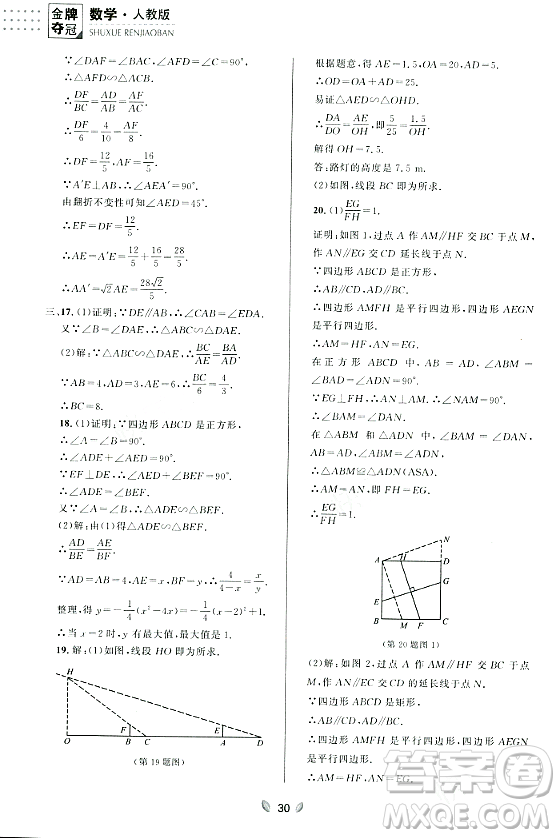 金牌夺冠
数学·人教版
SHUXUE RENJIAOBAN
∵∠DAF=∠BAC,∠AFD=∠C=90°,
∴△ADF∽△ABC.
∴DF/BC=AD/AB=AF/AC.
∴DF/6=4/10=AF/8.
∴DF=12/5,AF=16/5.
∵A′E⊥AB,∴∠AEA′=90°.
由翻折不变性可知∠AED=45°.
∴EF=DF=12/5.
∴AE=A′E=12/5+16/5=28/5.
∴AA′=√2AE=28√2/5.
三、17.(1)证明:∵DE∥AB,∴∠EDC=∠B.
又∵∠B=∠DAC,∴∠EDC=∠DAC.
(2)解:∵△ABC∽△ADE,∴BC/DE=BA/AD.
∵AB=
∴BC=8.
18.(1)证明:∵四边形ABCD是正方形,
∴∠A=∠B=90°.
∵EF⊥DE,∴∠DEF=90°.
∴∠ADE=∠BEF.
又∵∠A=∠B,∴△ADE∽△BEF.
(2)解:由(1)得△ADE∽△BEF.
∴AD/BE=AE/BF.
∵AD=AB=4,AE=x,BF=y,∴4/(4-x)=x/y.
整理,得y=-1/4(x²-4x)=-1/4(x-2)²+1.
∴当x=2时,y有最大值,最大值是1.
19.解:(1)如图,线段HO即为所求.
H
F
E
O B C A D
(第19题图)
根据题意,得AE=1.5,OA=20,AD=5.
∴OD=OA+AD=25.
易证△ADE∽△OHD.
∴DA/DO=AE/OH,即5/25=1.5/OH.
解得OH=7.5.
答:路灯的高度是7.5 m.
(2)如图,线段BC即为所求.
20.(1)EG/FH=1.
证明:如图1,过点A作AM∥HF交BC于点M,作AN∥EG交CD的延长线于点N,
∵四边形ABCD是正方形,
∴AB∥CD,AD∥BC.
∴四边形AMFH是平行四边形,四边形AEGN是平行四边形.
∴AM=HF,AN=EG.
在正方形ABCD中,AB=AD,∠ABM=∠BAD=∠ADN=90°.
∵EG⊥FH,∴∠NAM=90°.
∴∠BAM=∠DAN.
在△ABM和△ADN中,∠BAM=∠DAN,AB=AD,∠ABM=∠ADN,
∴△ABM≌△ADN(ASA).
∴AM=AN,即FH=EG.
∴EG/FH=1.
N
A H D
G
E
B M F C
(第20题图1)
(2)解:如图2,过点A作AM∥HF交BC于点M,作AN∥EG交CD的延长线于点N.
∵四边形ABCD是矩形,
∴AB∥CD,AD∥BC.
∴四边形AMFH是平行四边形,四边形AEGN是平行四边形.
∴AM=HF,AN=EG.
30
答案圈
MXQE.COM